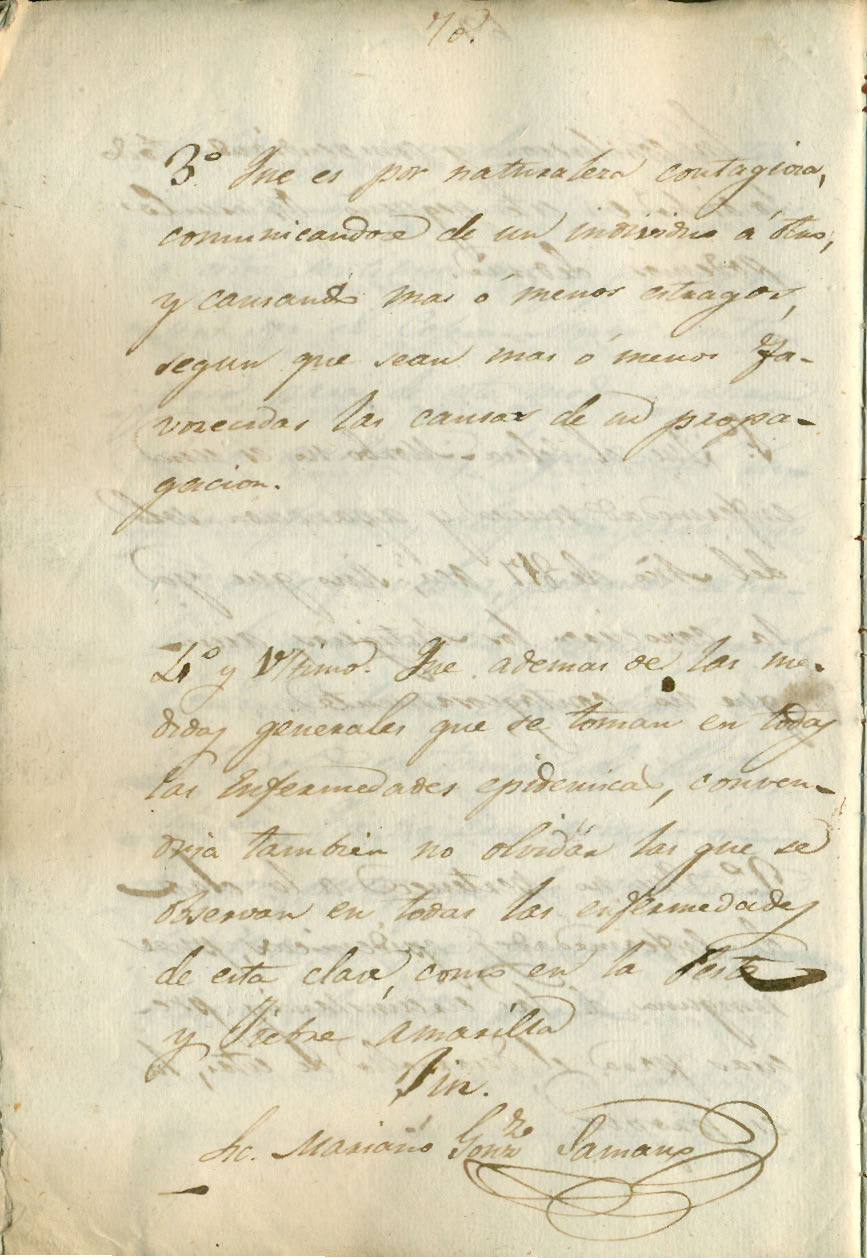 70.
3º Que es por naturaleza contagiosa,
comunicandose de un individuo á otro,
y causando mas ó menos estragos,
segun que sean mas ó menos fa-
vorecidas las causas de su propa-
gacion.
4º y Vltimo. Que ademas de las me-
didas generales que se toman en todas
las Enfermedades epidemicas, conven-
dria tambien no olvidar las que se
observan en todas las enfermedades
de esta clase, como en la Peste
y Fiebre Amarilla
Fin.
Lic. Mariano Gonz Samano